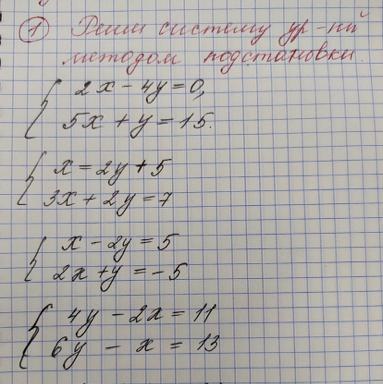 ① Реши систему ур-ний
методом подстановки.
2x - 4y = 0,
5x + y = 15.
x = 2y + 5
3x + 2y = 7
x - 2y = 5
2x + y = -5
4y - 2x = 11
6y - x = 13